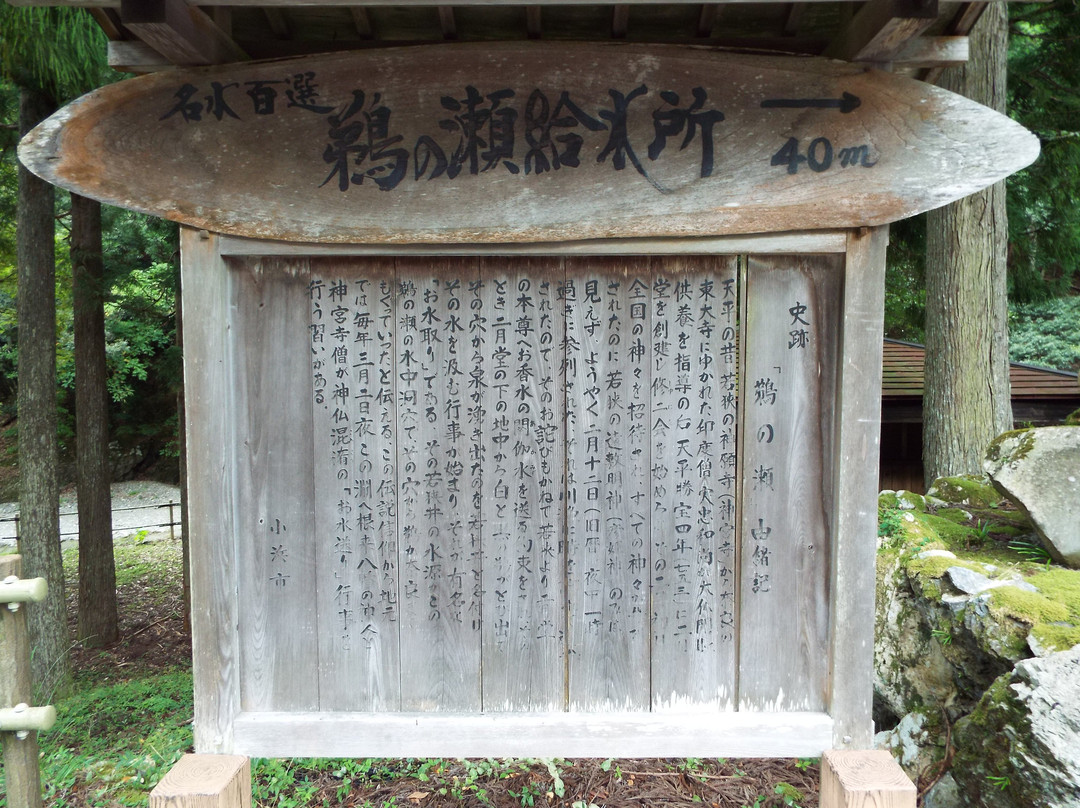 名水百選
鵜の瀬給水所
→
40m
史跡
「鵜の瀬 由緒記
天平の昔 若狭の神願寺(神宮寺)から
東大寺にゆかれた印度僧 実忠和尚が大仏開
供養を指導の后 天平勝宝四年(七五三)に二月
堂を創建し修二会を始め
全国の神々を招待され、すべての神々
されたのに若狭の遠敷明神
見えず、ようやく二月十二日(旧暦)夜中一時
過ぎに参列された、それは川
されたので、そのお詫びもかねて若狭より二月堂
の本尊へお香水の閼伽水を送る約束を
とき二月堂の下の地中から白と
その穴から泉が湧き出たのを若狭井と名付け
その水を汲む行事が始まり、それが有名な
「お水取り」である、その若狭井の水源との
鵜の瀬の水中洞穴で、その穴から鵜が
もぐっていったと伝える、この伝説信仰から地元
では毎年三月二日夜、この淵へ根来
神宮寺僧が神仏混淆の「お水送り」行事を
行う習いがある
小浜市